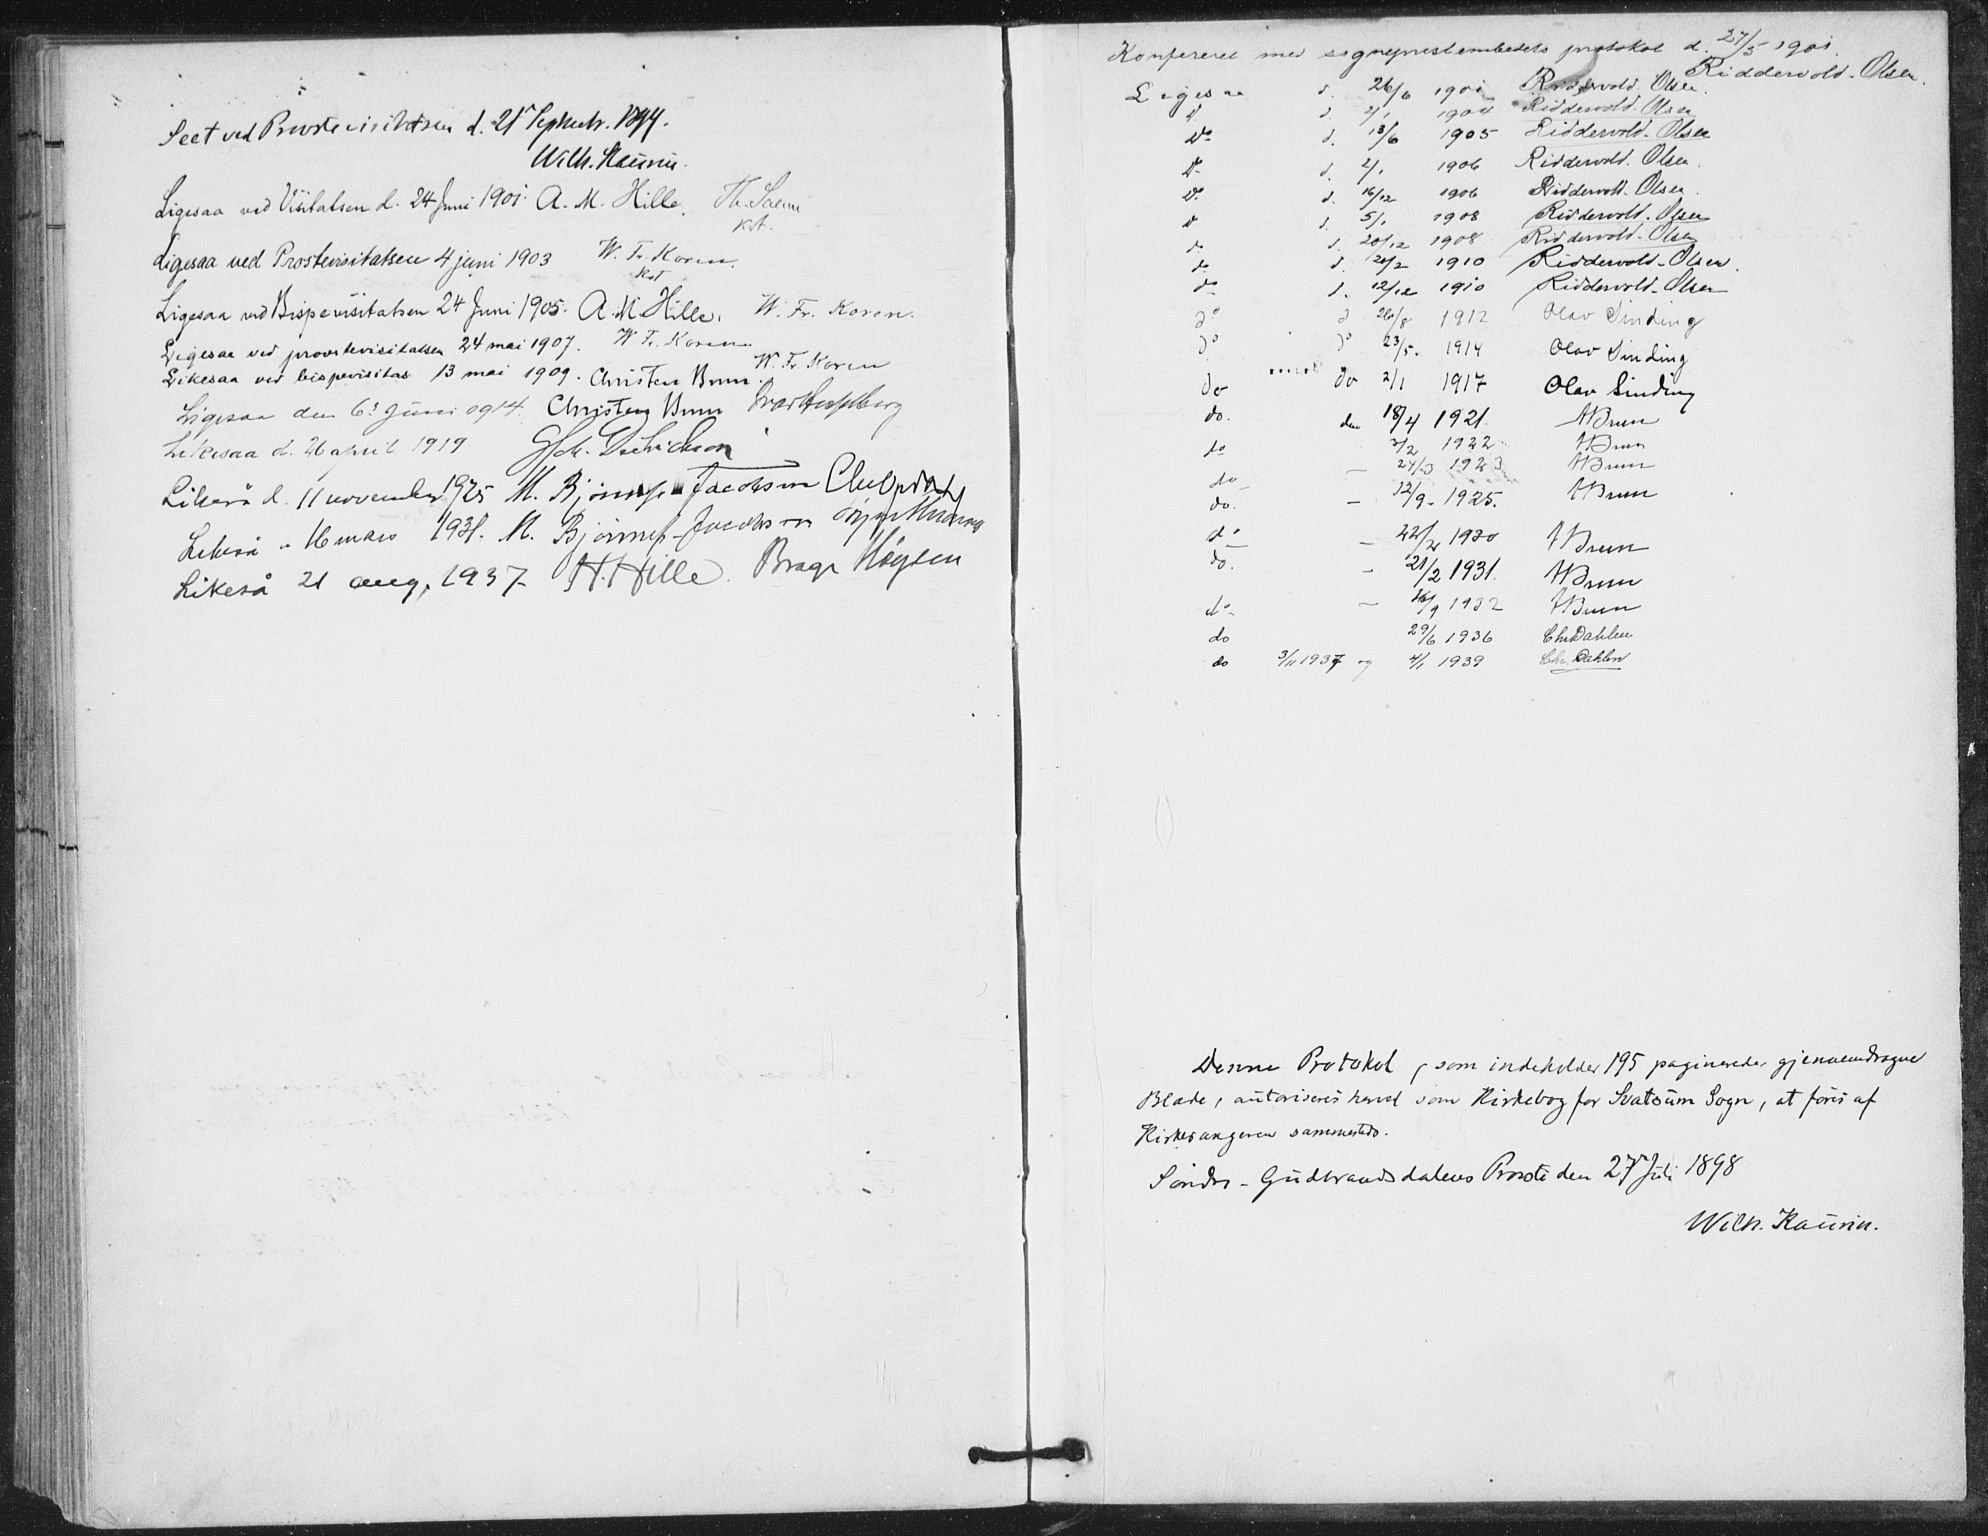 Seet ved Provstevisitatsen d. 21 Septenbr. 1899.
Wilh. Kaurin.
Ligesaa ved Visitatsen d. 24 Juni 1901. A. M. Hille. Th.
kst.
Ligesaa ved Prostevisitatsen 4 juni 1903 W. Fr. Koren.
kst
Ligesaa ved Bispevisitatsen 24 Juni 1905. A. M. Hille. W. Fr. Koren.
Ligesaa ved provstevisitatsen 24 mai 1907. W. Fr. Koren
Likesaa ved bispevisitas 13 mai 1909. Christen Brun. W. Fr. Koren
Ligesaa den 6 Juni 1914. Christen Brun
Likesaa d. 26 april 1919
Likeså d. 11 november 1925 M. Bjønnes-Jacobsen
Likeså " 16 mars 1931. M. Bjønnes-Jacobsen
Likeså 21 aug. 1937 H. Hille. Brage Høyem
Konfereret med sogneprestembedets protokol d. 27/5 1901.
Riddervold-Olsen.
Ligesaa d. 26/6 1901 Riddervold-Olsen.
d d. 2/1 1904 Riddervold-Olsen
Do d. 13/6 1905 Riddervold-Olsen
D d. 2/1 1906 Riddervold-Olsen.
D. d. 16/12 1906 Riddervold-Olsen.
d d. 5/1 1908 Riddervold-Olsen
do d. 20/12 1908 Riddervold-Olsen
do d. /2 1910 Riddervold-Olsen.
do d. 12/12 1910 Riddervold-Olsen
do d 26/8 1912 Olav Sinding
do do 23/5. 1914 Olav Sinding
do do 2/1 1917 Olav Sinding
do. den 18/4 1921. Brun
do 3/2 1922 Brun
do - 27/3 1923 Brun
do. - 12/9 - 1925. Brun
do - 22/2 1930 Brun
do. - 21/2 1931. Brun
do - /9 1932 Brun
do 29/6 1936 Chr. Dahlen
do 3/11 1937 og 4/1 1939 Chr. Dahlen
Denne Protokol, som indeholder 195 paginerede gjennemdragne
Blade, autoriseres herved som Kirkebog for Svatsum Sogn, at føres af
Kirkesangeren sammesteds.
Søndre-Gudbrandsdalens Provsti den 27 Juli 1898
Wilh. Kaurin.